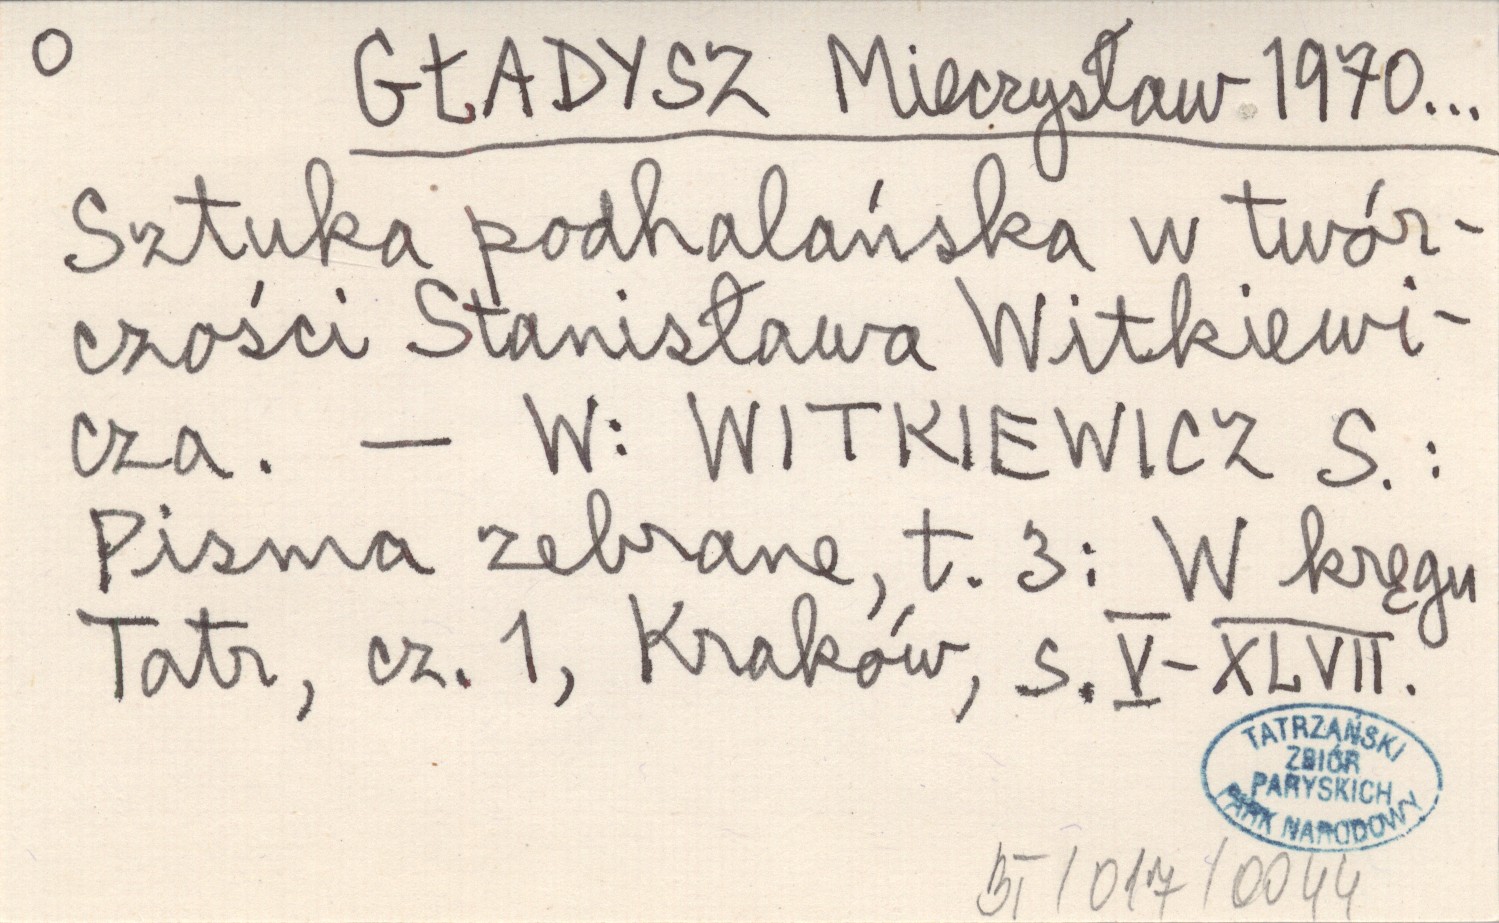 O GŁADYSZ Mieczysław 1970...
Sztuka podhalańska w twór-
czości Stanisława Witkiewi-
cza. — W: WITKIEWICZ S.:
Pisma zebrane, t. 3: W kręgu
Tatr, cz. 1, Kraków, s. V-XLVII.
TATRZAŃSKI
ZBIÓR
PARYSKICH
PARK NARODOWY
BI/017/0044